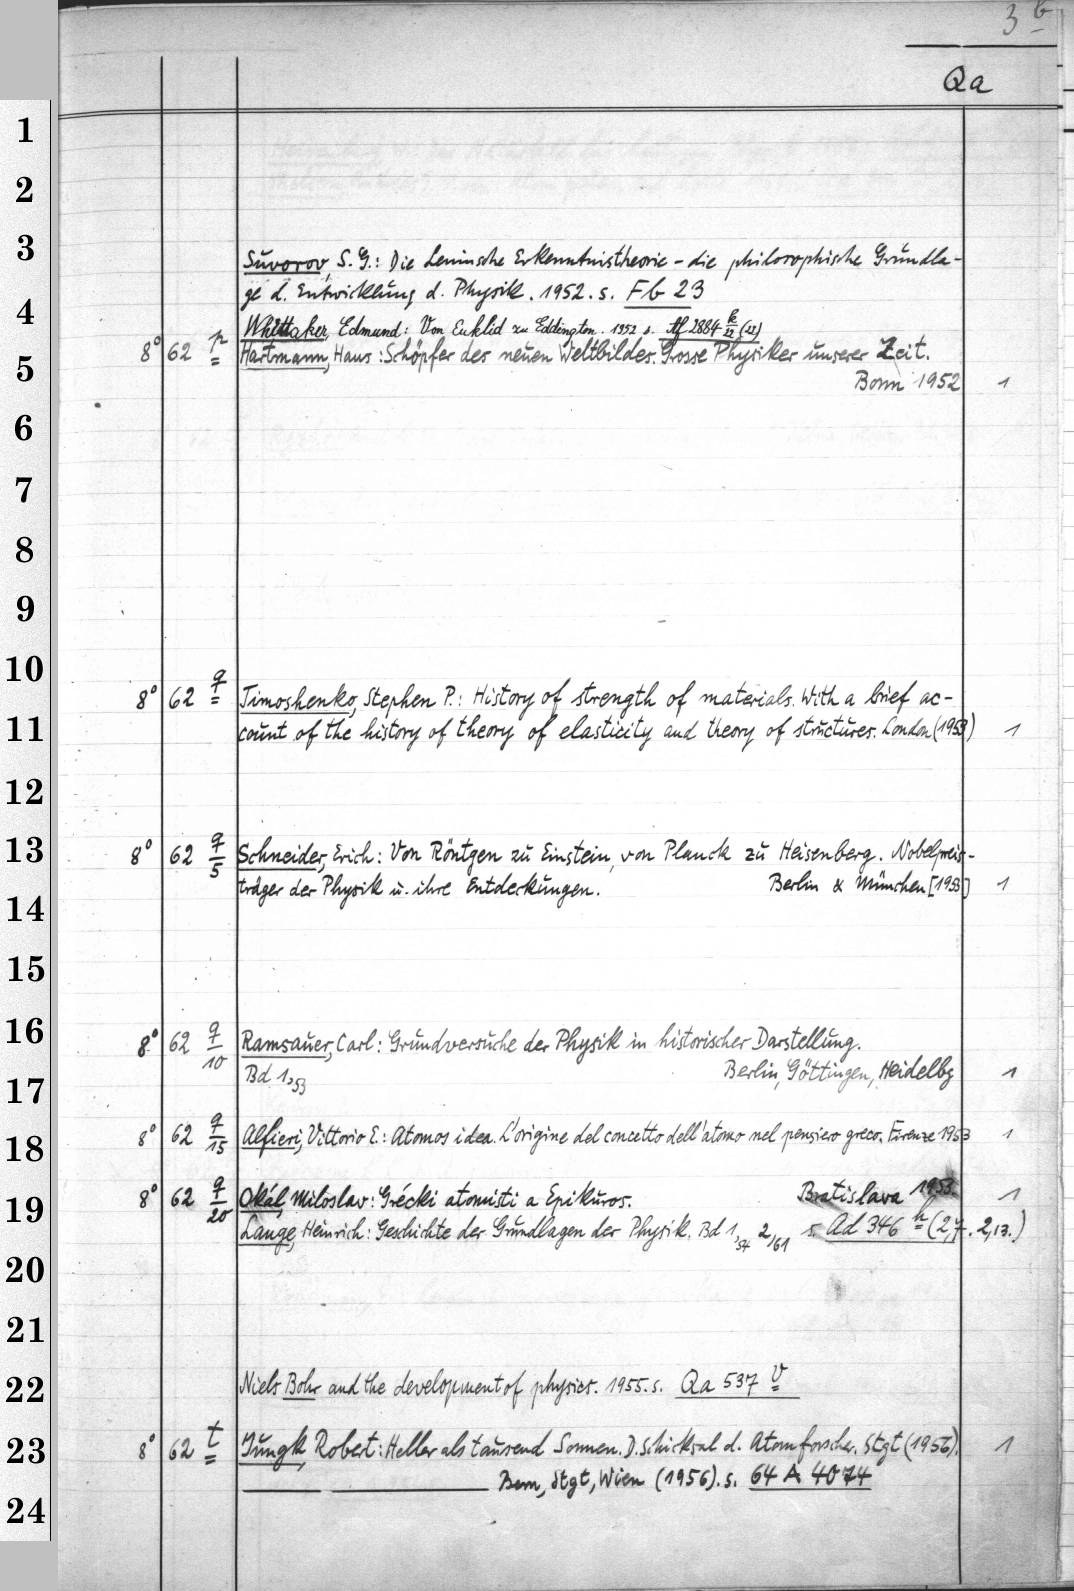 3 b
Qa
1
2
3
Suvorov, S. G.: Die Leninsche Erkenntnistheorie – die philosophische Grundla-
ge d. Entwicklung d. Physik. 1952. s. Fb 23
4
Whittaker, Edmund: Von Euklid zu Eddington. 1952 s. Af 2884 k/22 (22)
8° 62 p Hartmann, Hans: Schöpfer des neuen Weltbildes. Grosse Physiker unserer Zeit.
5
Bonn 1952 1
6
7
8
9
10
8° 62 q Timoshenko, Stephen P.: History of strength of materials. With a brief ac-
11
count of the history of theory of elasticity and theory of structures. London (1953) 1
12
13
8° 62 q/5 Schneider, Erich: Von Röntgen zu Einstein, von Planck zu Heisenberg. Nobelpreis-
träger der Physik u. ihre Entdeckungen. Berlin & München [1953] 1
14
15
16
8° 62 q/10 Ramsauer, Carl: Grundversuche der Physik in historischer Darstellung.
Bd 1,53 Berlin, Göttingen, Heidelbg 1
17
8° 62 q/15 Alfieri, Vittorio E.: Atomos idea. L'origine del concetto dell'atomo nel pensiero greco. Firenze 1953 1
18
8° 62 q/20 Okál, Miloslav: Grécki atomisti a Epikuros. Bratislava 1953 1
19
Lange, Heinrich: Geschichte der Grundlagen der Physik. Bd 1,54 2,61 s. Ad 346 h (2,7. 2,13.)
20
21
22
Niels Bohr and the development of physics. 1955. s. Qa 537 v
23
8° 62 t Jungk, Robert: Heller als tausend Sonnen. D. Schicksal d. Atomforscher. Stgt (1956). 1
Bern, Stgt, Wien (1956). s. 64 A 4074
24